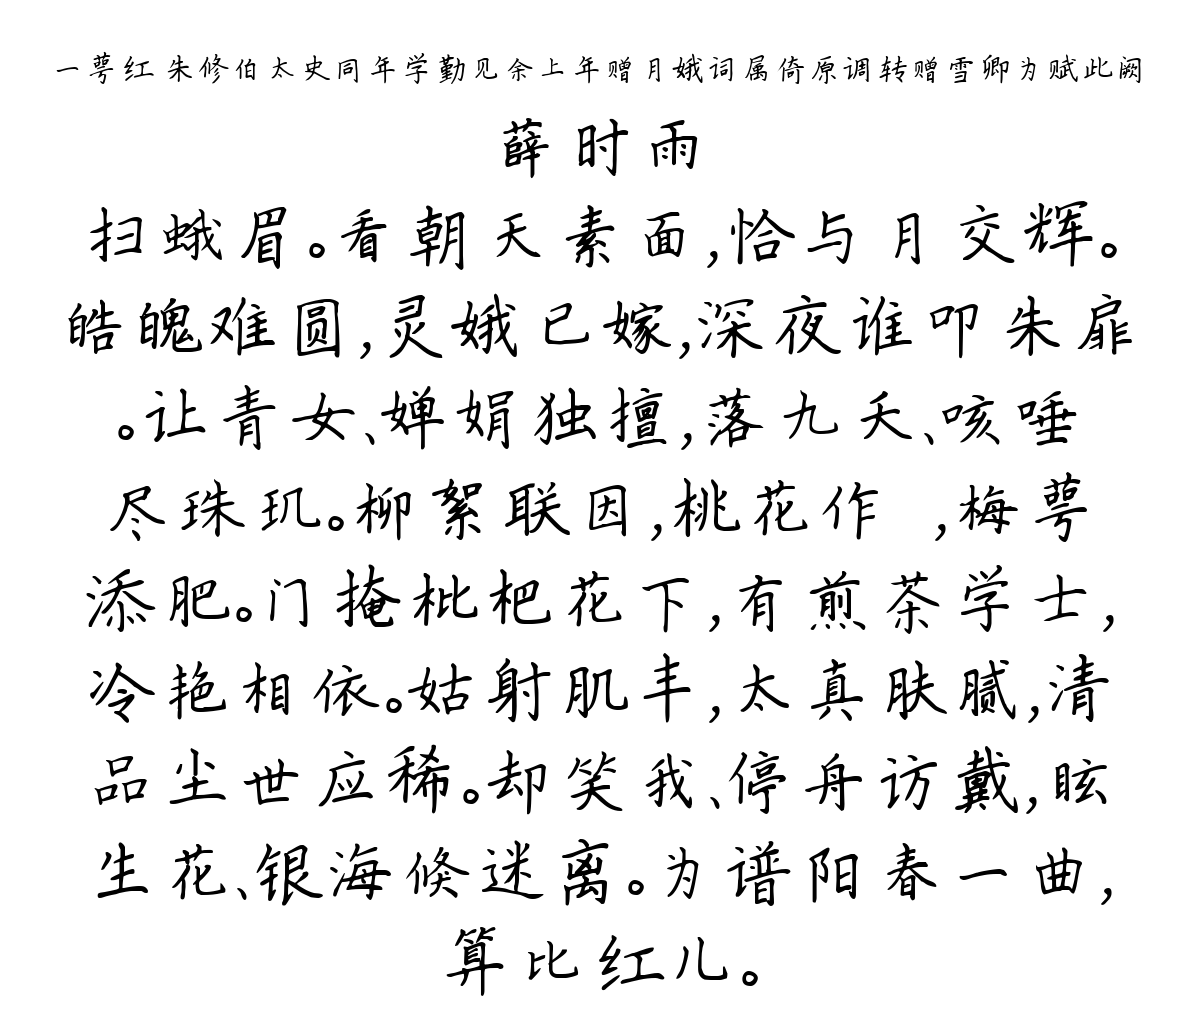 一萼红 朱修伯太史同年学勤见余上年赠月娥词属倚原调转赠雪卿为赋此阙
薛时雨
扫蛾眉。看朝天素面,恰与月交辉。
皓魄难圆,灵娥已嫁,深夜谁叩朱扉
。让青女、婵娟独擅,落九天、咳唾
尽珠玑。柳絮联因,桃花作 ,梅萼
添肥。门掩枇杷花下,有煎茶学士,
冷艳相依。姑射肌丰,太真肤腻,清
品尘世应稀。却笑我、停舟访戴,眩
生花、银海倏迷离。为谱阳春一曲,
算比红儿。